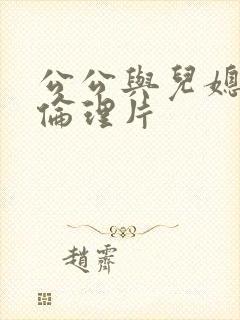 公公與兒媳
倫理片
趙霽